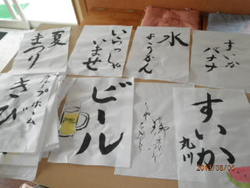 夏
まつり
いらっしゃ
いませ
水
ようかん
すいか
バナナ
グループホーム
きび
ビール
すいか
九川